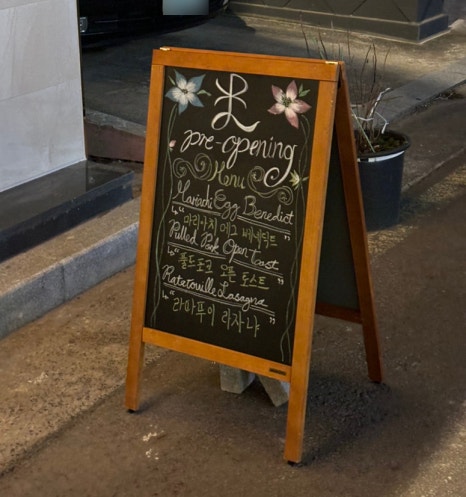 pre-opening
Menu
Mariachi Egg Benedict
"마리아치 에그 베네딕트"
Pulled Pork Open Toast
"풀드포크 오픈 토스트"
Ratatouille Lasagna
"라따뚜이 라자냐"